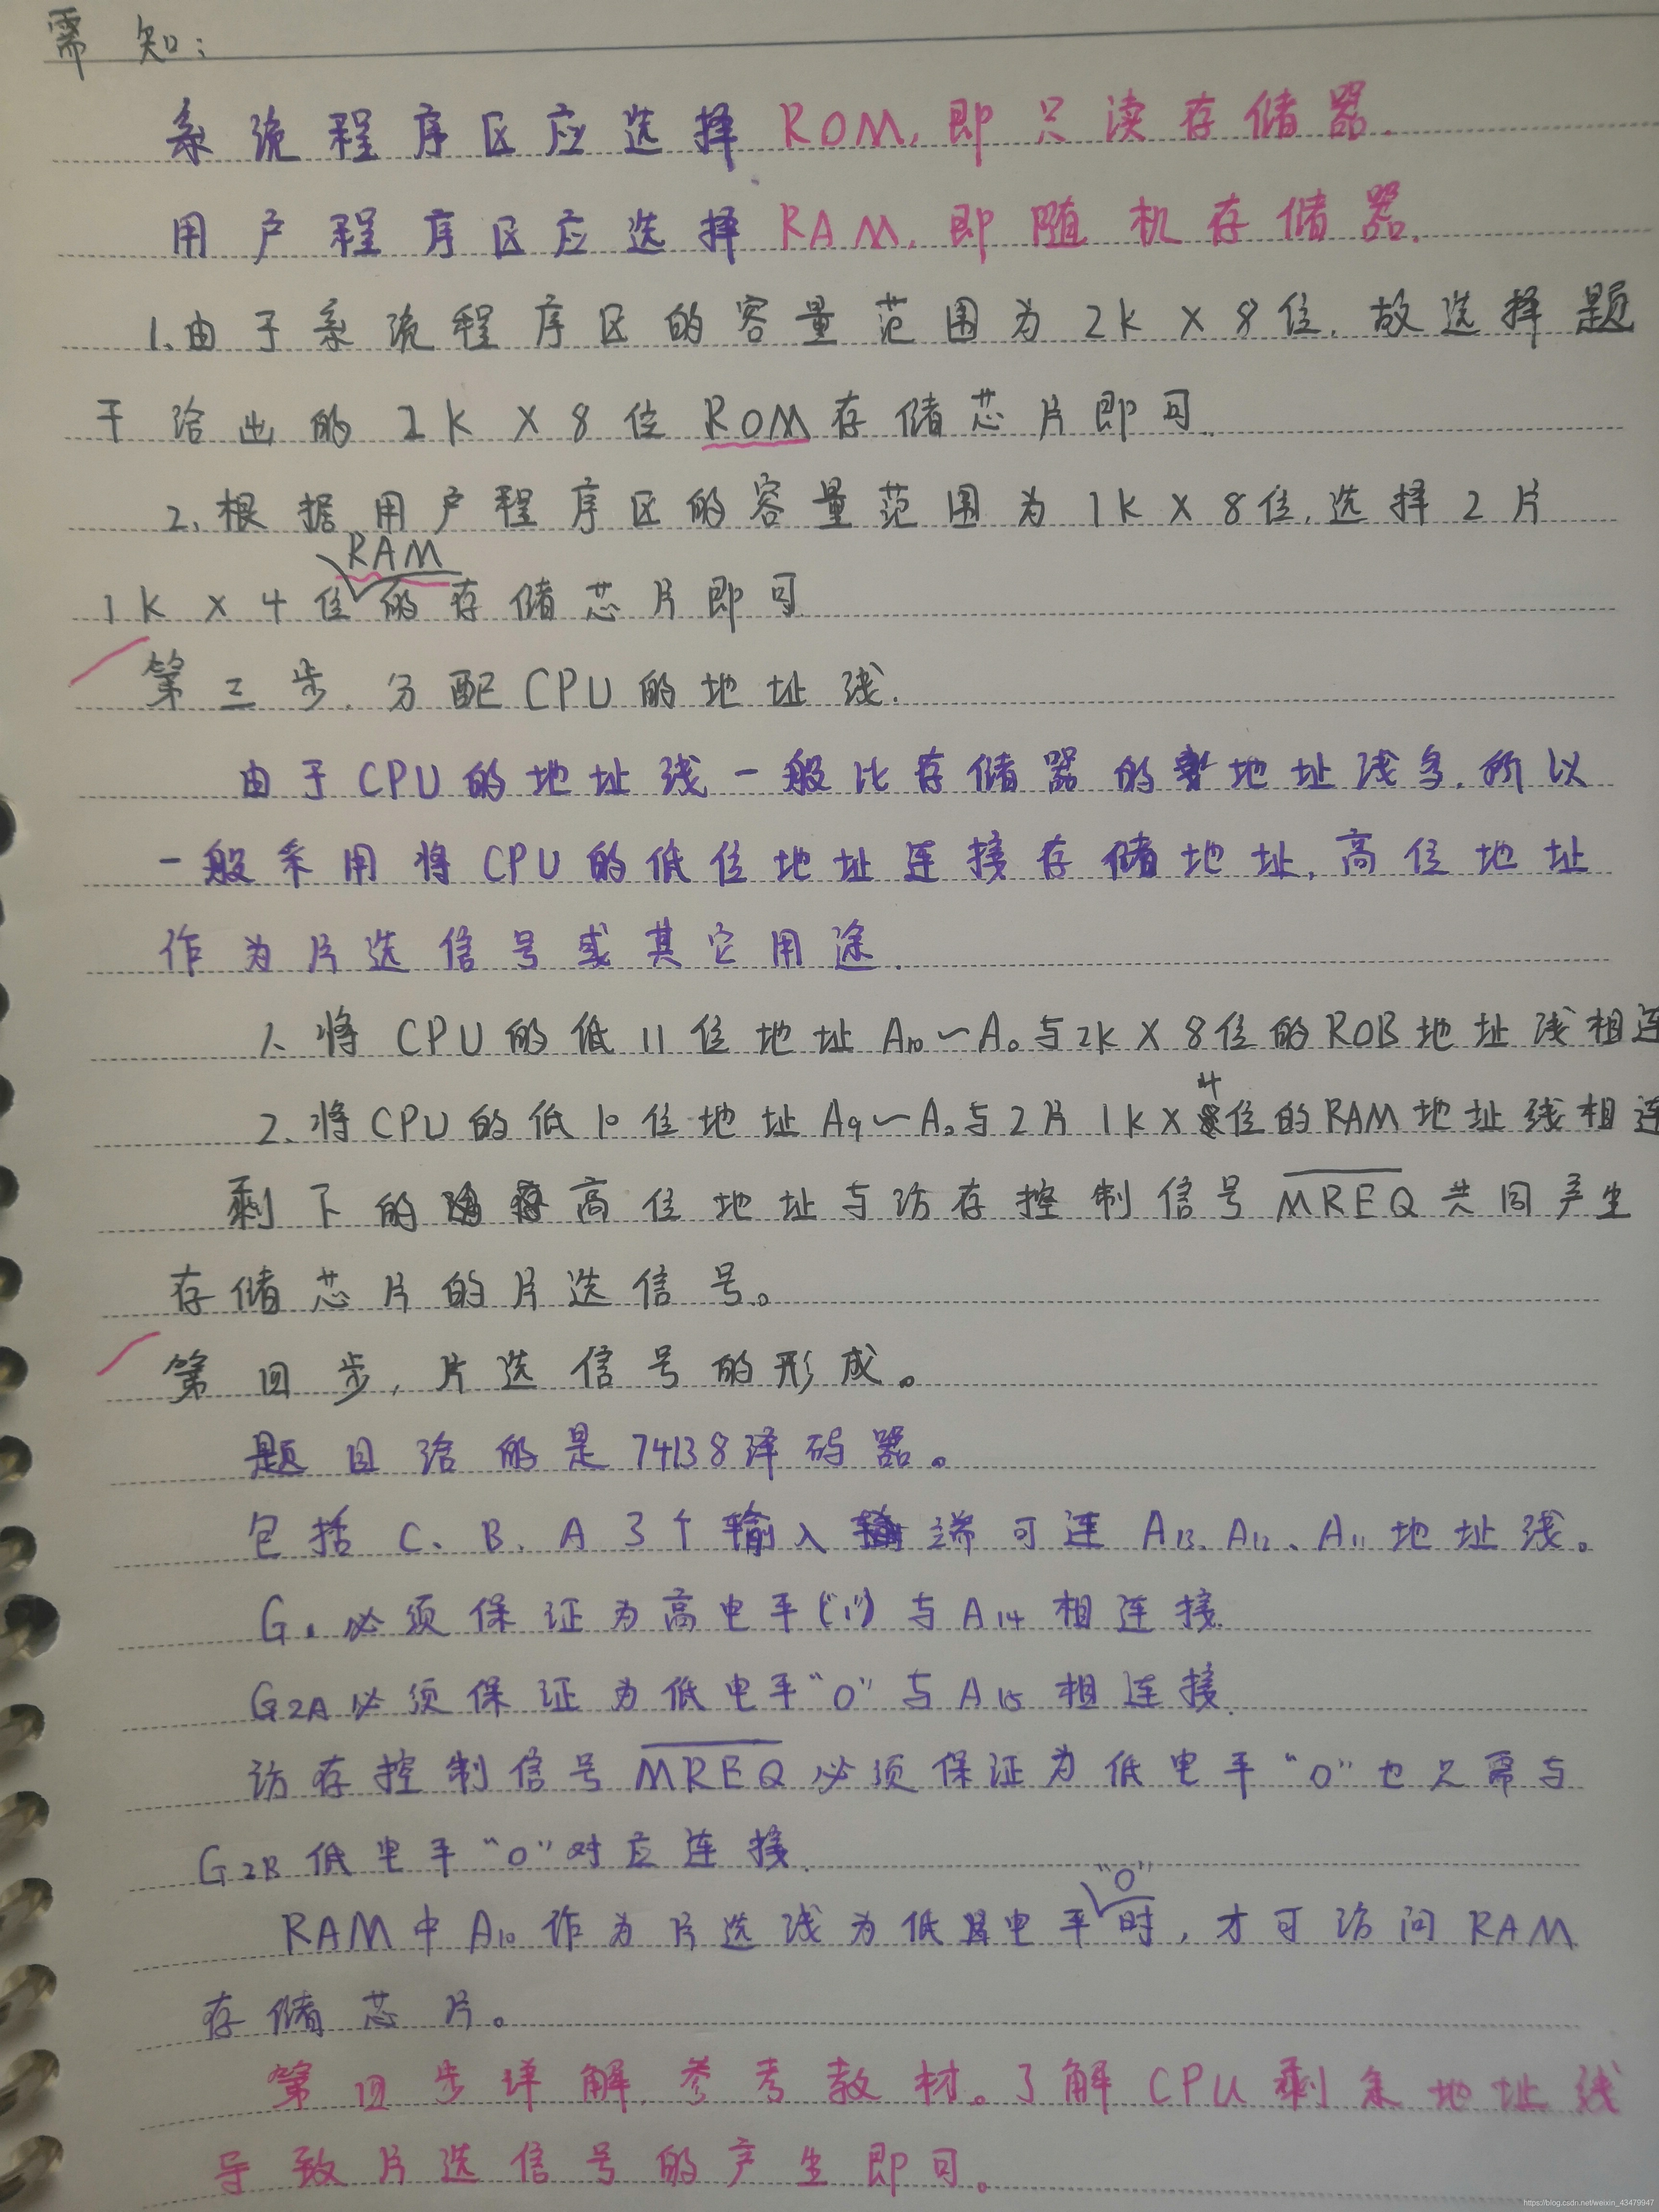 需知:
系统程序区应选择ROM,即只读存储器.
用户程序区应选择RAM,即随机存储器.
1.由于系统程序区的容量范围为2K X 8位,故选择题
干给出的2K X 8位ROM存储芯片即可.
2.根据用户程序区的容量范围为1K X 8位,选择2片
1K X 4位RAM的存储芯片即可
第三步.分配CPU的地址线.
由于CPU的地址线一般比存储器的地址线多,所以
一般采用将CPU的低位地址连接存储地址,高位地址
作为片选信号或其它用途.
1.将CPU的低11位地址A10~A0与2K X 8位的ROB地址线相连
2.将CPU的低10位地址A9~A0与2片1K X 4位的RAM地址线相连
剩下的高位地址与访存控制信号MREQ共同产生
存储芯片的片选信号。
第四步,片选信号的形成。
题目给的是74138译码器。
包括C、B、A 3个输入端可连A13、A12、A11地址线。
G1必须保证为高电平("1")与A14相连接.
G2A必须保证为低电平"0"与A15相连接.
访存控制信号MREQ必须保证为低电平"0"也只需与
G2B低电平"0"对应连接.
RAM中A10作为片选线为低电平"0"时,才可访问RAM
存储芯片。
第四步详解,参考教材。了解CPU剩余地址线
导致片选信号的产生即可。
https://blog.csdn.net/weixin_43479947